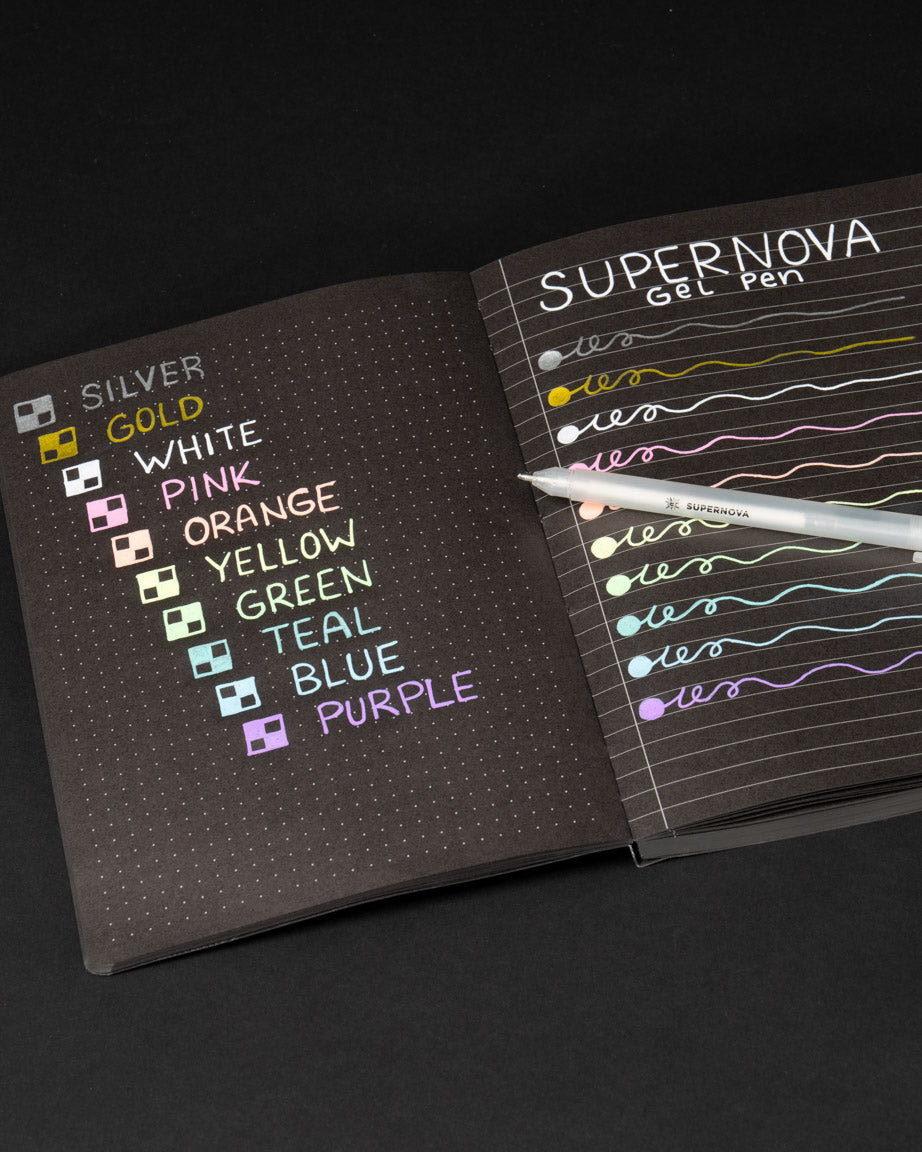 SILVER
GOLD
WHITE
PINK
ORANGE
YELLOW
GREEN
TEAL
BLUE
PURPLE
SUPERNOVA
Gel Pen
SUPERNOVA